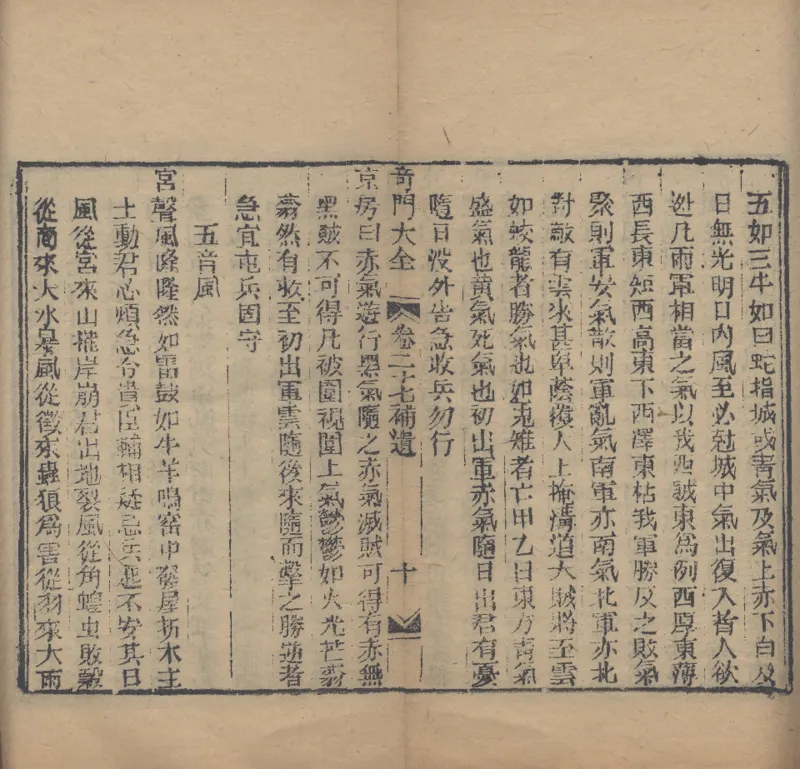 五如三牛如日蛇指城或青氣及氣上赤下白及
日無光明日內風至必尅城中氣出復入皆人欲
迯凡兩軍相當之氣以我西賊東為例西厚東薄
西長東短西高東下西澤東枯我軍勝反之敗氣
聚則軍安氣散則軍亂氣南軍亦南氣北軍亦北
對敵有雲來甚卑蔭復人上掩溝道大賊將至雲
如蛟龍者勝氣也如兎雉者亡甲乙日東方青氣
盛氣也黃氣死氣也初出軍赤氣隨日出君有憂
隨日沒外告急收兵勿行
奇門大全 卷二十七補遺 十
京房曰赤氣遊行黑氣隨之赤氣滅賊可得有赤無
黑賊不可得凡被圍視圍上氣鬱鬱如火光芒
然有敗至初出軍雲隨後來隨而擊之勝逆者
急宜屯兵固守
五音風
宮聲風隆隆然如雷鼓如牛羊鳴窖中發屋折木主
土動君心煩急令貴臣輔相疑忌兵起不安其日
風從宮來山摧岸崩君出地裂風從角蝗虫敗穀
從商來大水暴風從徵來蟲狼為害從羽來大雨